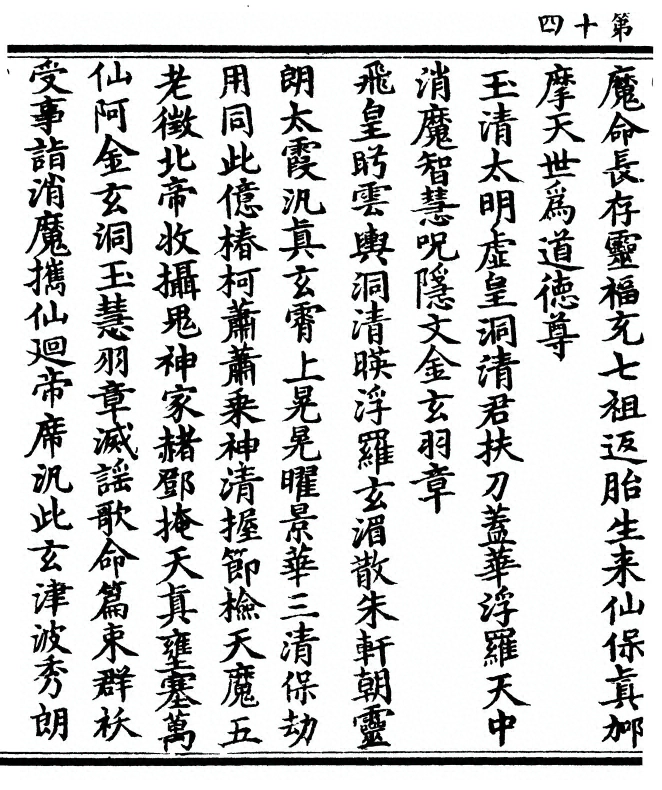 第十四
魔命長存靈福充七祖返胎生来仙保眞加
摩天世爲道德尊
玉清太明虚皇洞清君扶刀蓋華浮羅天中
消魔智慧呪隱文金玄羽章
飛皇眄雲輿洞清暎浮羅玄湄散朱軒朝靈
朗太霞汎眞玄霄上晃晃曜景華三清保劫
用同此億椿柯蕭蕭乘神清握節檢天魔五
老徵北帝收攝鬼神家赭鄧掩天眞壅塞萬
仙阿金玄洞玉慧羽章滅謡歌命篇束群祅
受事詣消魔攜仙廻帝席汎此玄津波秀朗